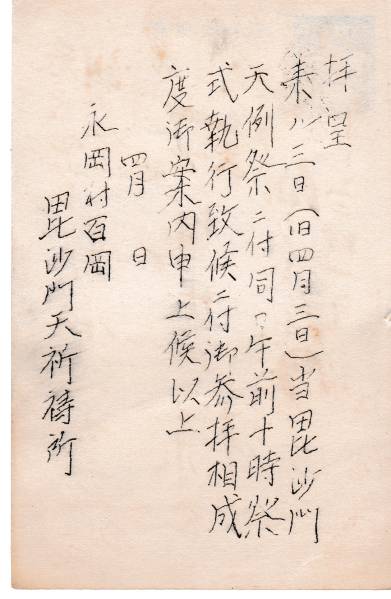 拝呈
来ル三日(旧四月三日)当毘沙門
天例祭ニ付同日午前十時祭
式執行致候ニ付御参拝相成
度御案内申上候以上
四月 日
永岡村百岡
毘沙門天祈祷所